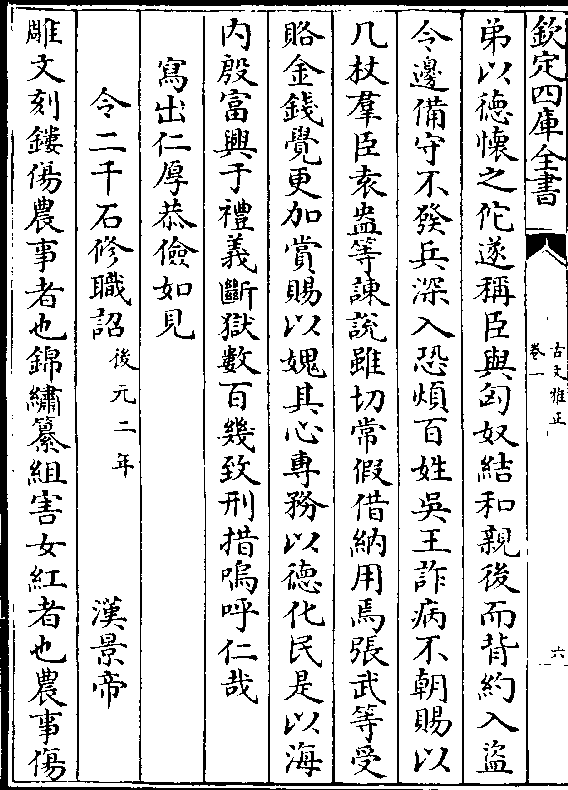 欽定四庫全書
古文雅正
卷一
六
弟以徳懐之佗遂稱臣與匈奴結和親後而背約入盜
令邊備守不發兵深入恐煩百姓吳王詐病不朝賜以
几杖羣臣袁盎等諫說雖切常假借納用焉張武等受
賂金錢覺更加賞賜以媿其心專務以徳化民是以海
内殷富興于禮義斷獄數百幾致刑措嗚呼仁哉
寫出仁厚恭儉如見
令二千石修職詔後元二年 漢景帝
雕文刻鏤傷農事者也錦繡纂組害女紅者也農事傷